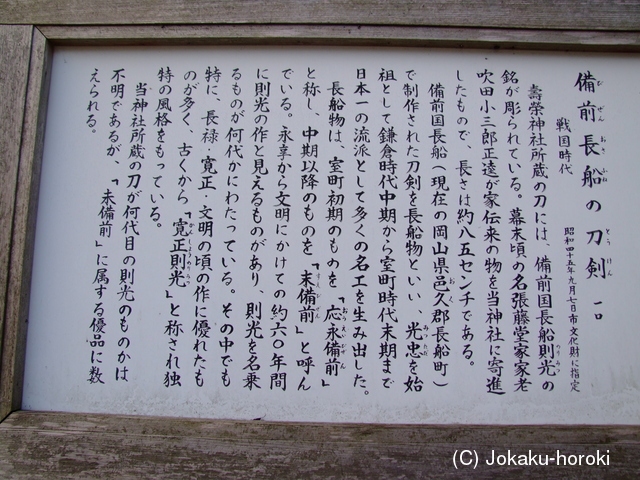 備前長船の刀剣 一口
戦国時代
昭和四十五年九月七日市文化財に指定
壽榮神社所蔵の刀には、備前国長船則光の
銘が彫られている。幕末頃の名張藤堂家家老
吹田小三郎正達が家伝来の物を当神社に寄進
したもので、長さは約八五センチである。
備前国長船(現在の岡山県邑久郡長船町)
で制作された刀剣を長船物といい、光忠を始
祖として鎌倉時代中期から室町時代末期まで
日本一の流派として多くの名工を生み出した。
長船物は、室町初期のものを「応永備前」
と称し、中期以降のものを「末備前」と呼ん
でいる。永享から文明にかけての約六〇年間
に則光の作と見えるものがあり、則光を名乗
るものが何代かにわたっている。その中でも
特に、長禄・寛正・文明の頃の作に優れたも
のが多く、古くから「寛正則光」と称され独
特の風格をもっている。
当神社所蔵の刀が何代目の則光のものかは
不明であるが、「末備前」に属する優品に数
えられる。
(C) Jokaku-horoki